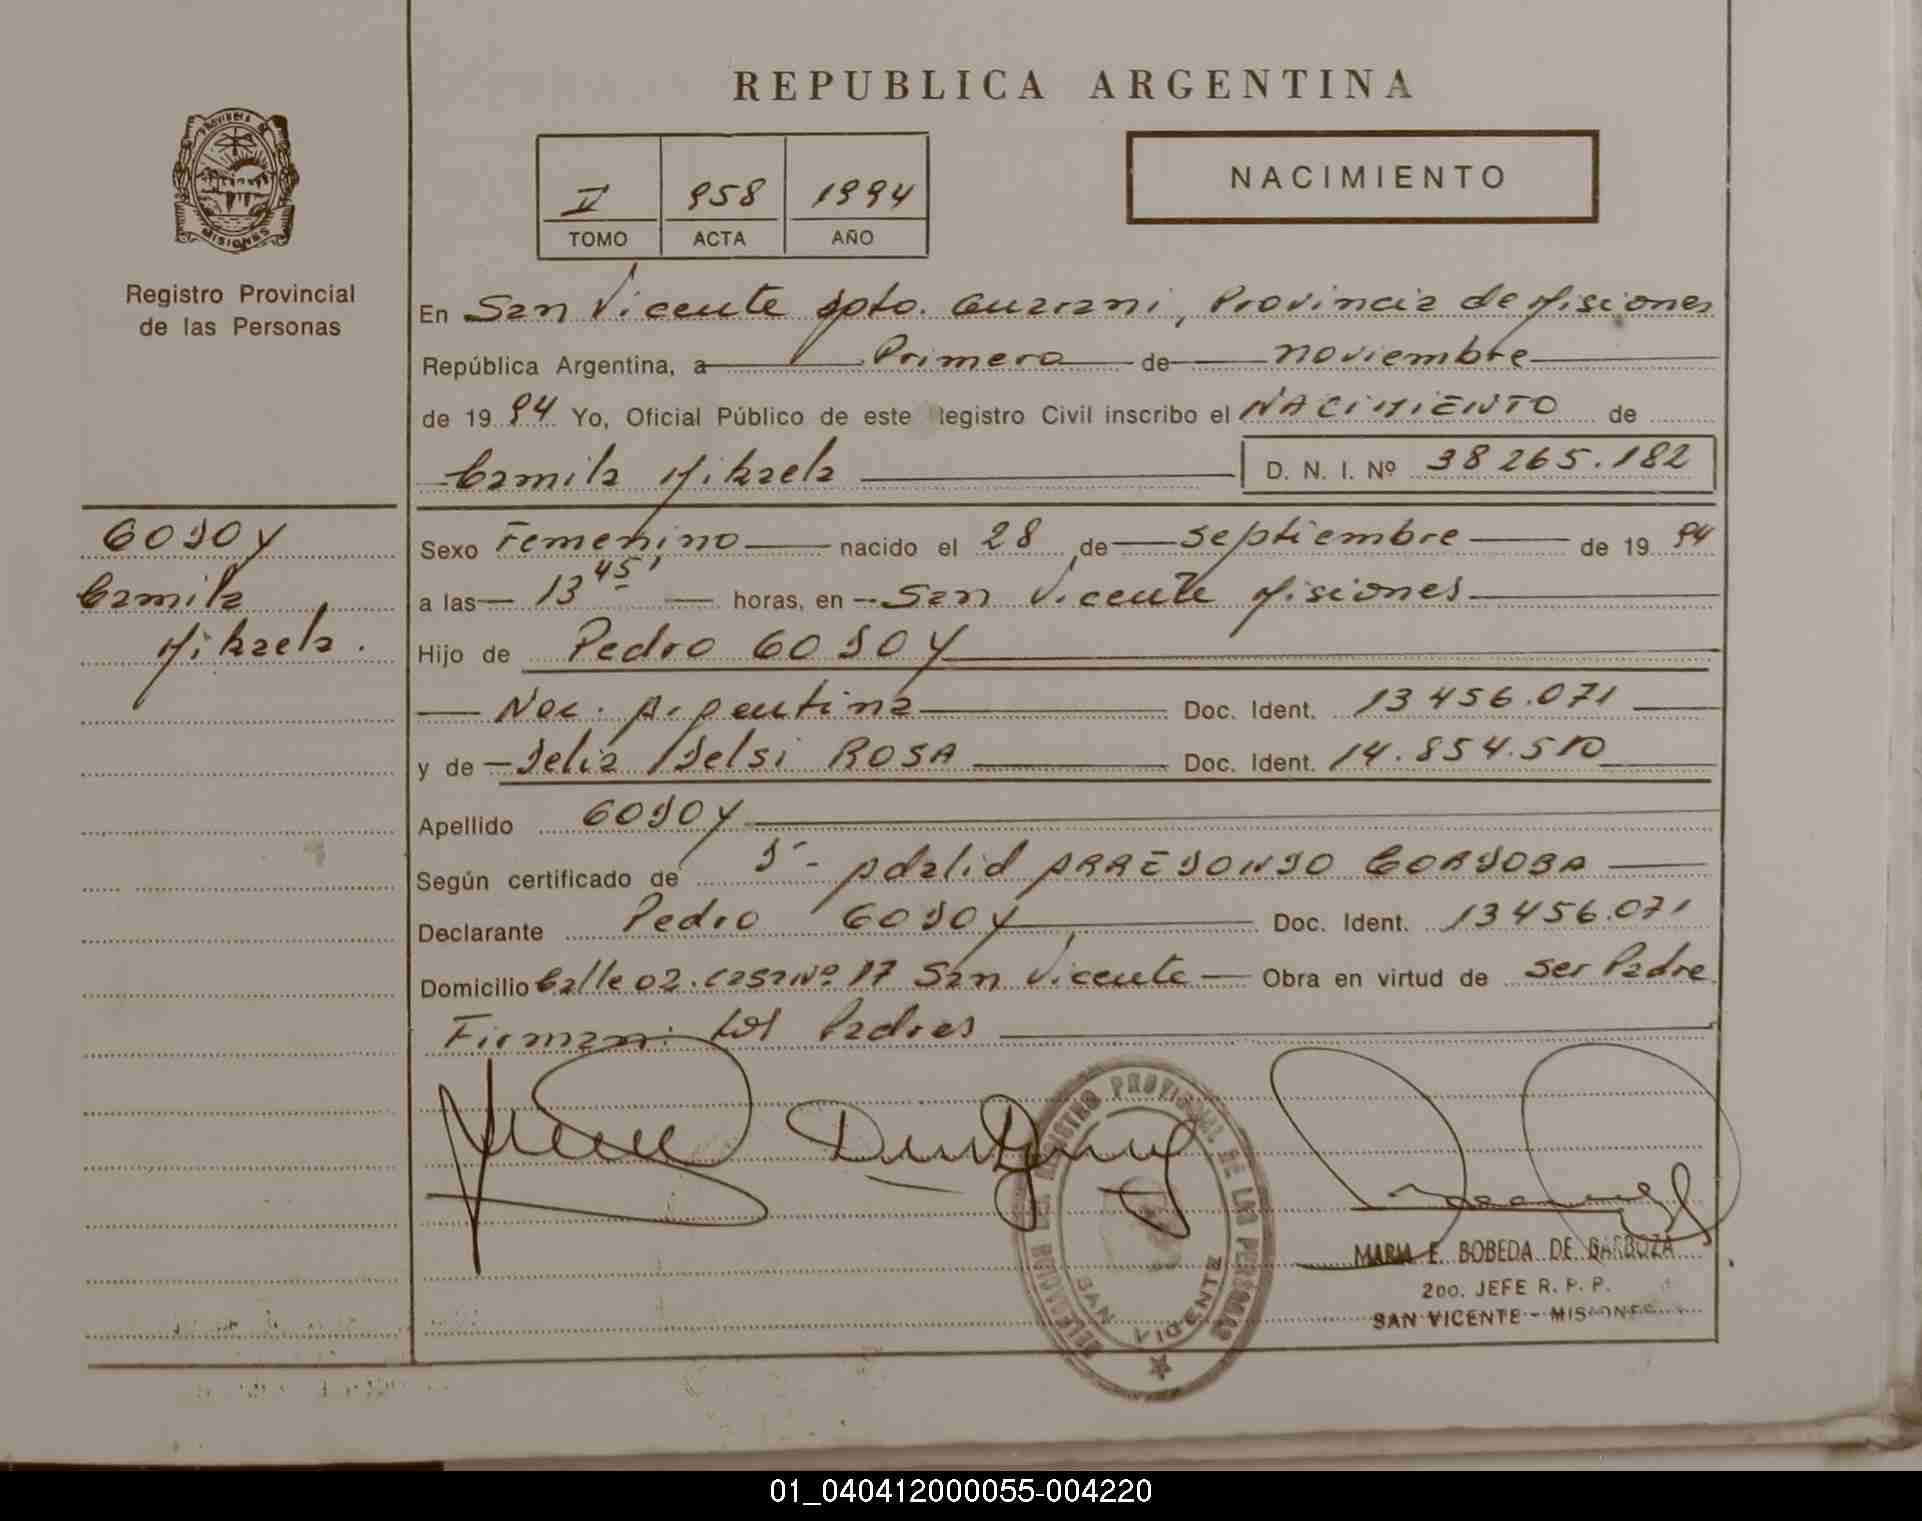 REPUBLICA ARGENTINA
PROVINCIA DE
MISIONES
Registro Provincial
de las Personas
II 958 1994
TOMO ACTA AÑO
NACIMIENTO
En San Vicente Dpto. Guarani, Provincia de Misiones
República Argentina, a Primero de noviembre
de 1994 Yo, Oficial Público de este Registro Civil inscribo el NACIMIENTO de
Camila Mikaela D. N. I. Nº 38265.182
GODOY
Camila
Mikaela.
Sexo Femenino nacido el 28 de septiembre de 1994
a las 13 45' horas, en San Vicente Misiones
Hijo de Pedro GODOY
Nac. Argentina Doc. Ident. 13456.071
y de Delia Delsi ROSA Doc. Ident. 14.854.510
Apellido GODOY
Según certificado de Dº- Adalid ARREDONDO CORDOBA
Declarante Pedro GODOY Doc. Ident. 13456.071
Domicilio Calle 02. casa Nº 17 San Vicente Obra en virtud de ser Padre
Firman: los Padres
DELEGACION DEL REGISTRO PROVINCIAL DE LAS PERSONAS
SAN VICENTE
MARIA E. BOBEDA DE BARBOZA
2DO. JEFE R. P. P.
SAN VICENTE - MISIONES
01_040412000055-004220